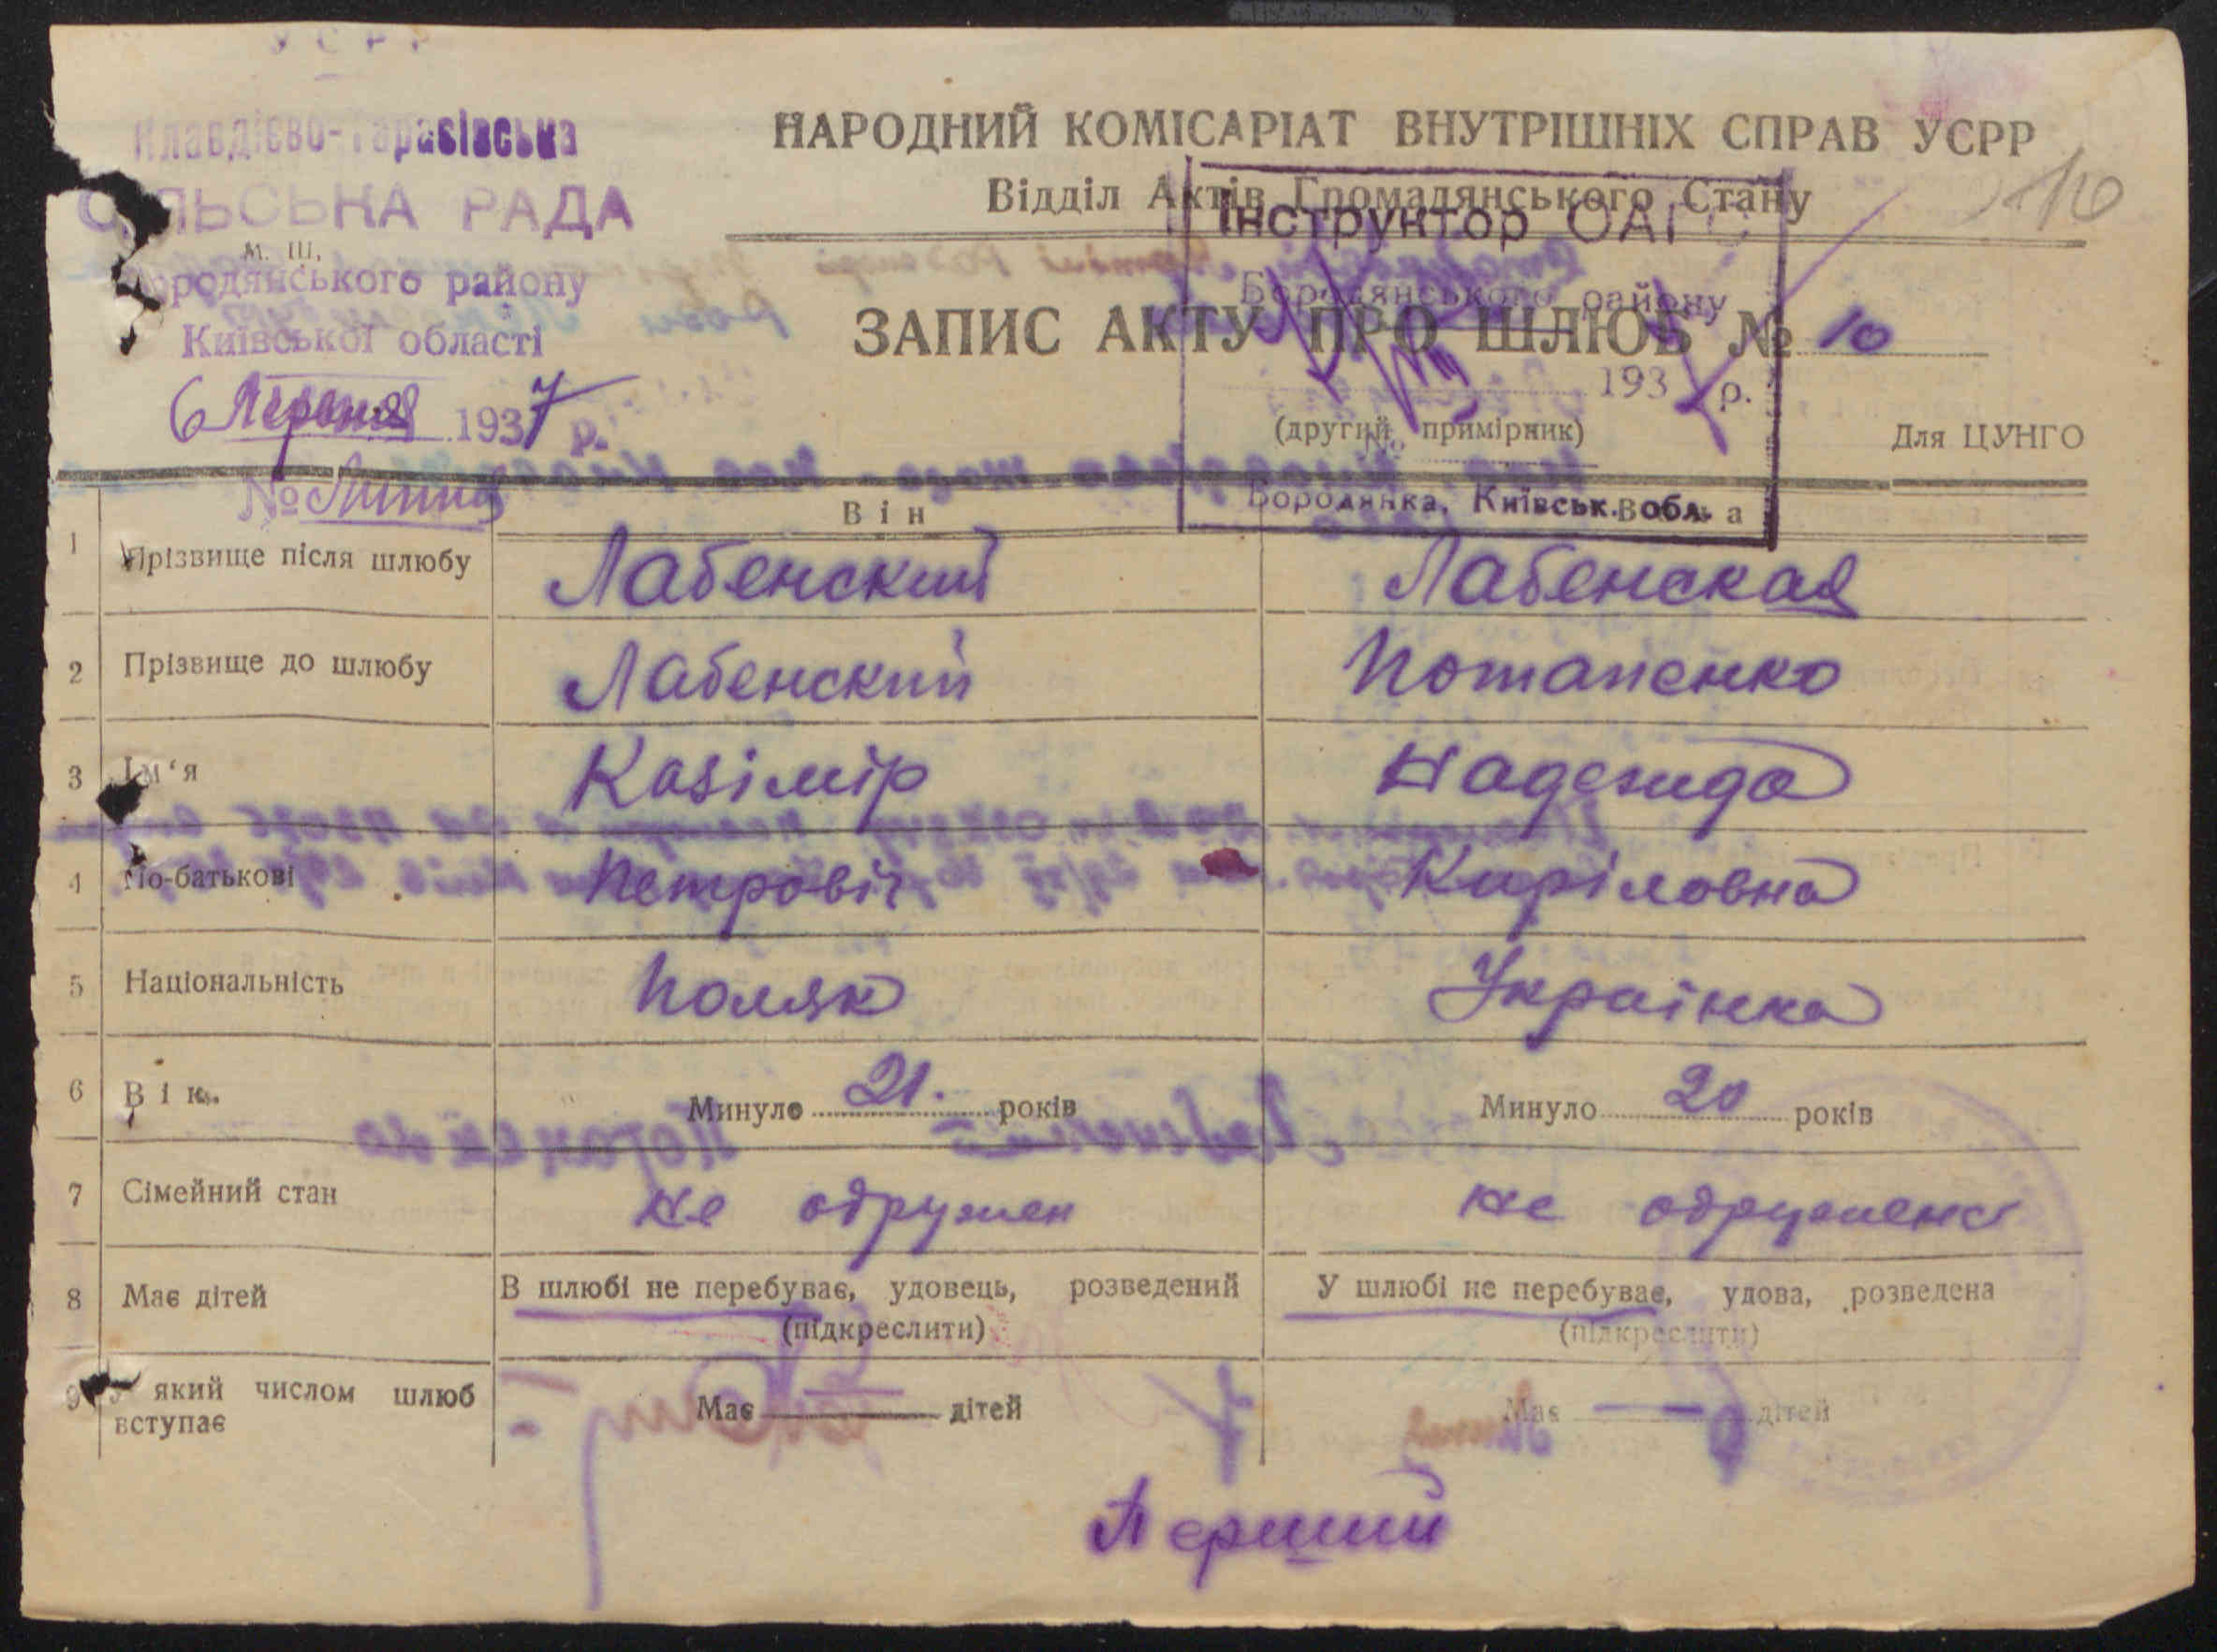 УСРР
Клавдієво-Тарасівська
СІЛЬСЬКА РАДА
м. Ш.
Бородянського району
Київської області
6 Червня 1937 р.
№
НАРОДНИЙ КОМІСАРІАТ ВНУТРІШНІХ СПРАВ УСРР
Відділ Актів Громадянського Стану
10
Інструктор ОАГС
Бородянського району
ЗАПИС АКТУ ПРО ШЛЮБ № 10
193 р.
(другий примірник)
Для ЦУНГО
Бородянка, Київськ. обл.
Він
Вона
1 Прізвище після шлюбу Лабенский Лабенская
2 Прізвище до шлюбу Лабенский Потапенко
3 Ім‘я Казімір Надежда
4 По-батькові Петровіч Киріловна
5 Національність Поляк Українка
6 Вік Минуло 21. років Минуло 20 років
7 Сімейний стан не одружен не одружена
8 Має дітей В шлюбі не перебуває, удовець, розведений У шлюбі не перебуває, удова, розведена
(підкреслити) (підкреслити)
9 У який числом шлюб вступає Має — дітей Має — дітей
Перший